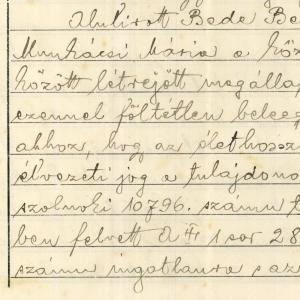 Alulirott Bede Bé
Munkácsi Mária a köz
között létrejött megállap
ezennel föltétlen beleeg
ahhoz, hogy az élethossz
élvezeti jog a tulajdono
szolnoki 10796. számu t
ben felvett A II 1 sor 28
számu ingatlanra s az